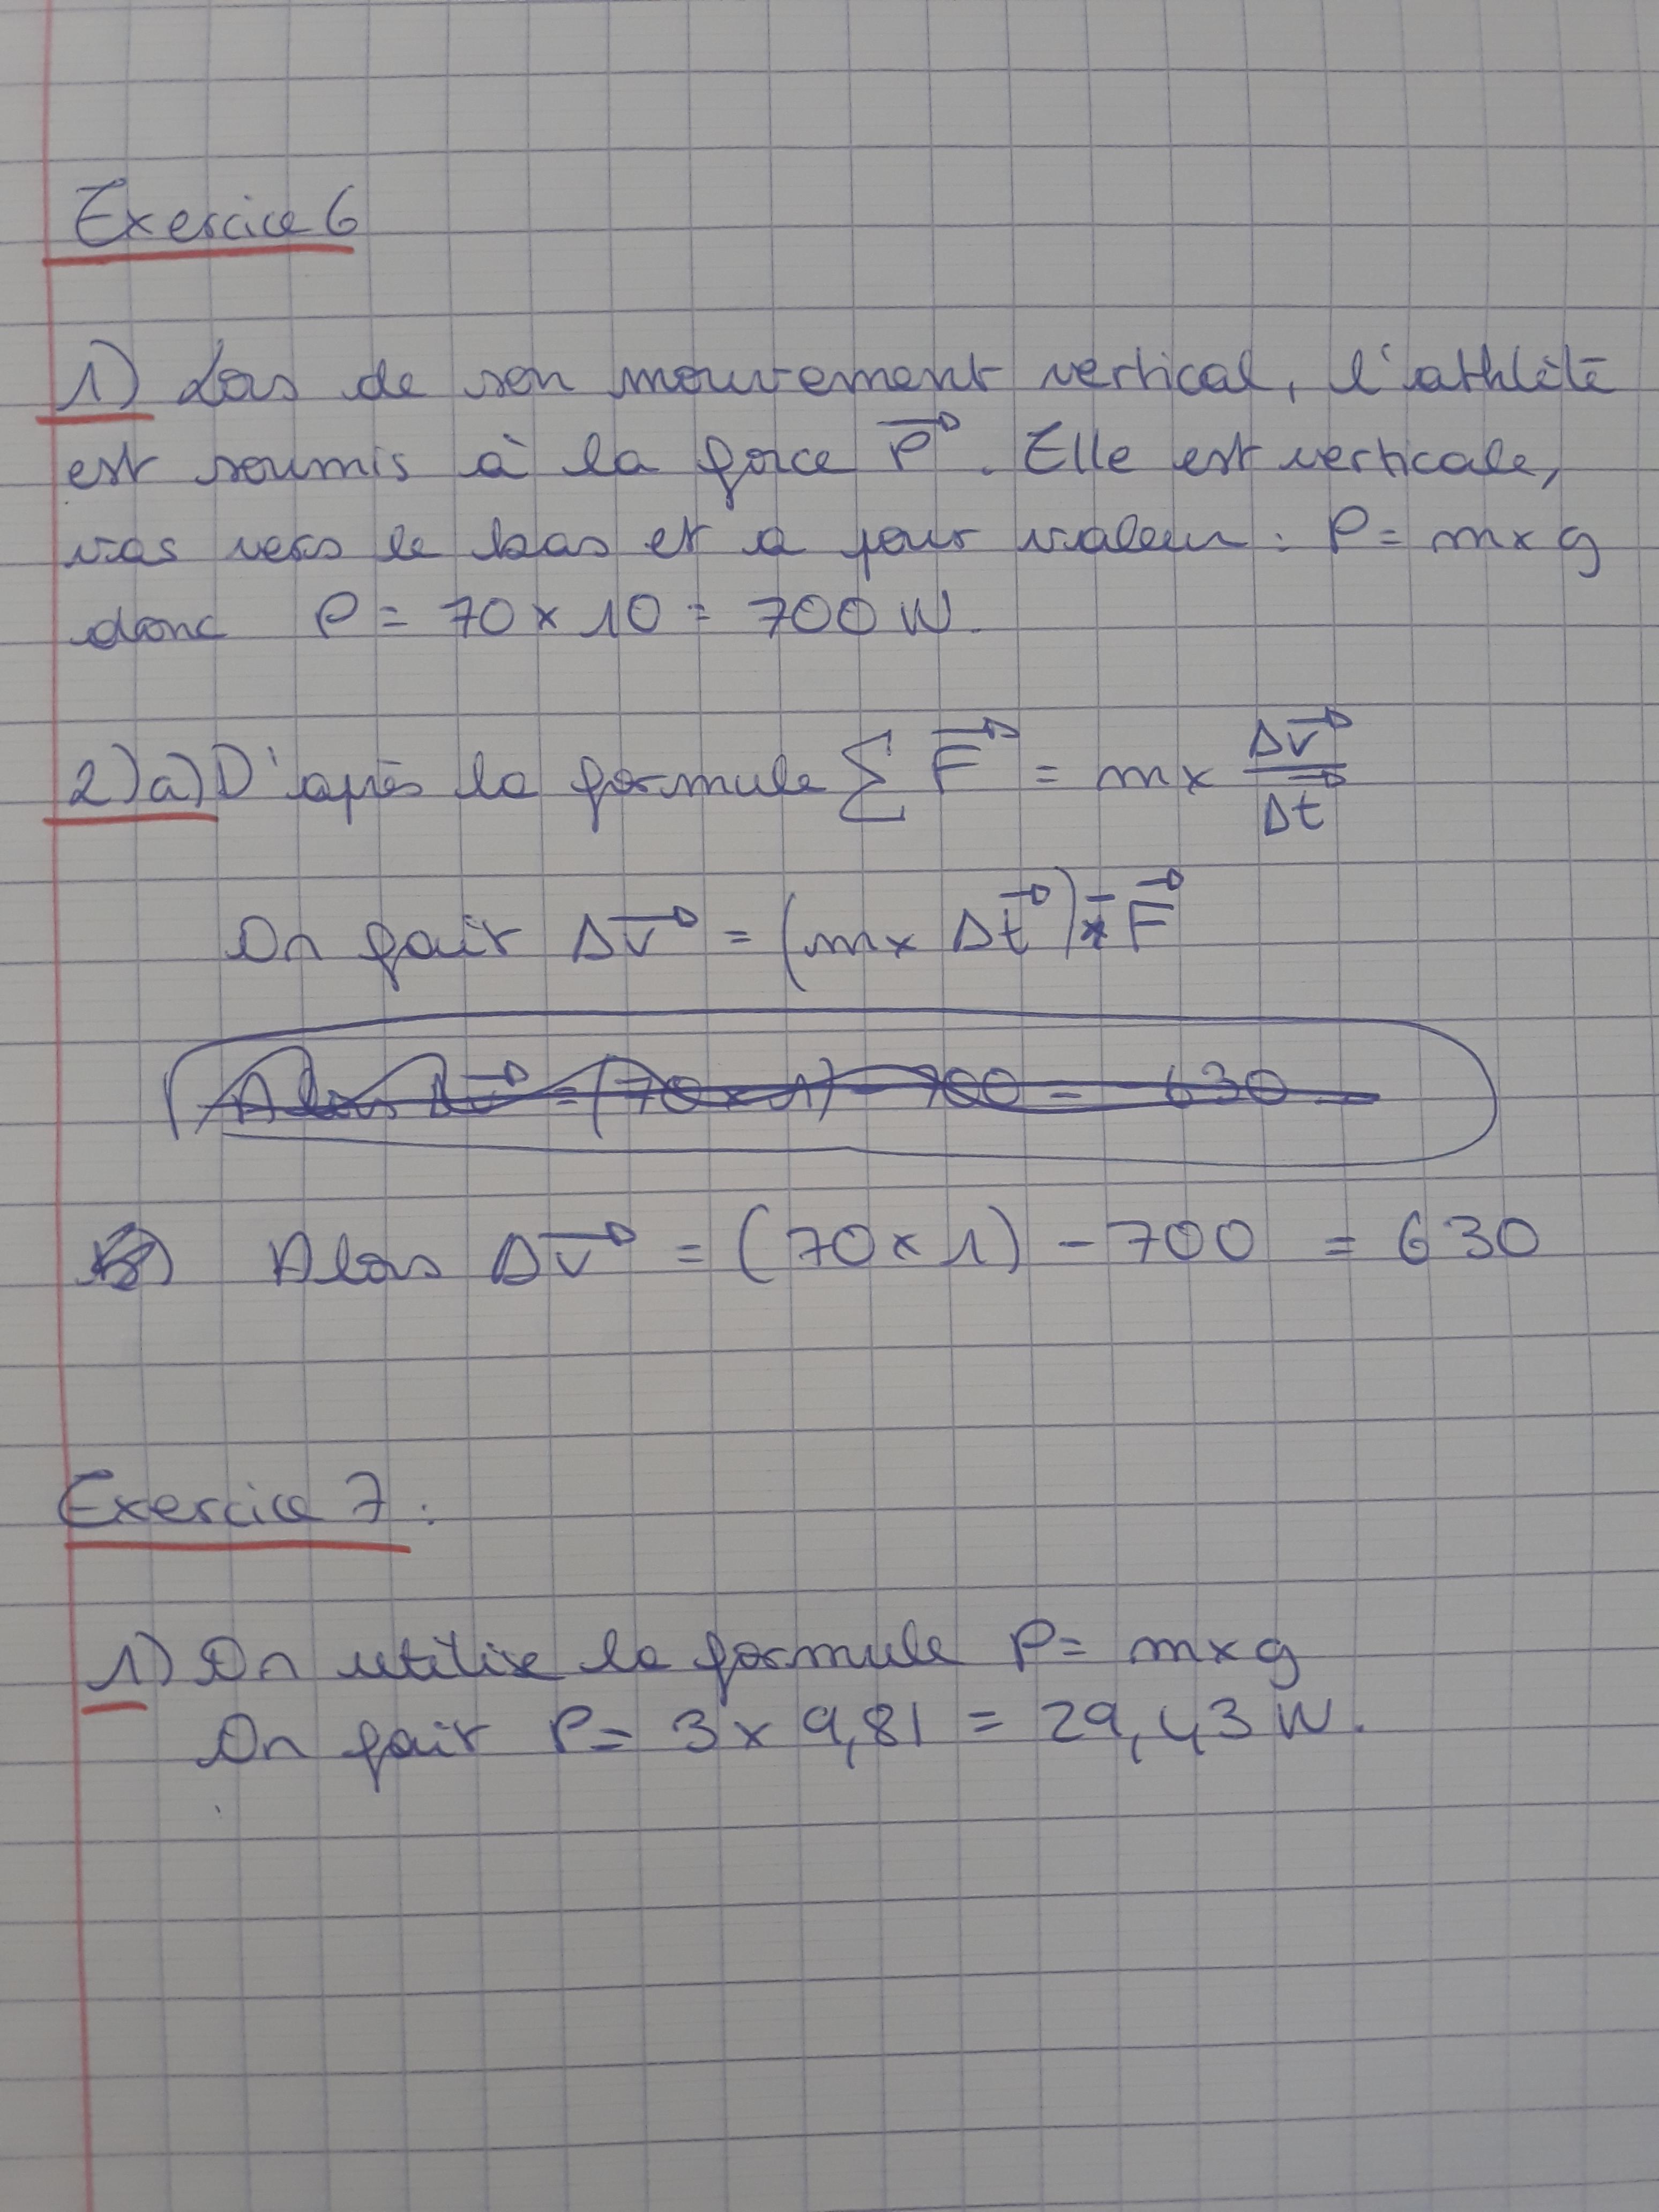 Exercice 6
1) Lors de son mouvement vertical, l'athlète
est soumis à la force P⃗. Elle est verticale,
vas vers le bas et a pour valeur : P = m x g
donc P = 70 x 10 = 700 N.
2)a) D'après la formule ∑ F⃗ = m x Δv⃗ / Δt
On fait Δv⃗ = (m x Δt⃗) - F⃗
Alors Δv⃗ = (70 x 1) - 700 = 630
Alors Δv⃗ = (70 x 1) - 700 = 630
Exercice 7 :
1) On utilise la formule P = m x g
On fait P = 3 x 9,81 = 29,43 N.